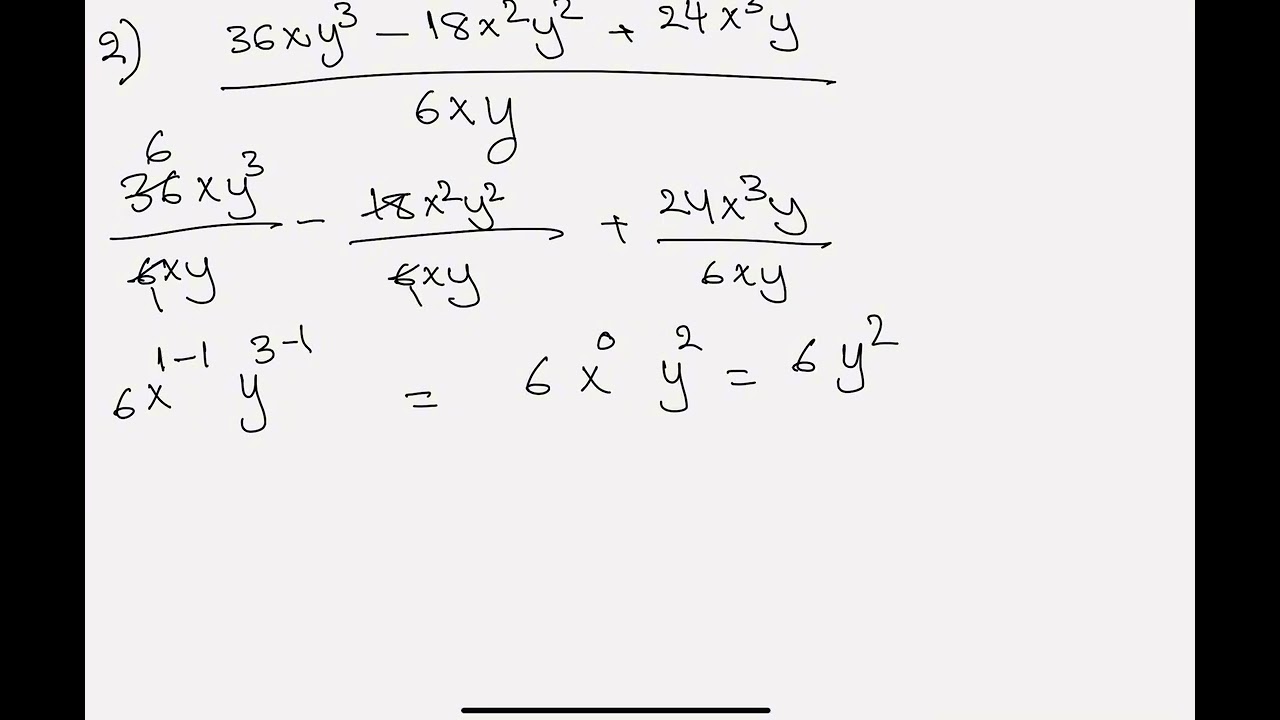 2) 36xy³ − 18x²y² + 24x³y
6xy
6
36xy³ − 18x²y² + 24x³y
6xy 6xy 6xy
1 1
6x¹⁻¹ y³⁻¹ = 6x⁰ y² = 6y²